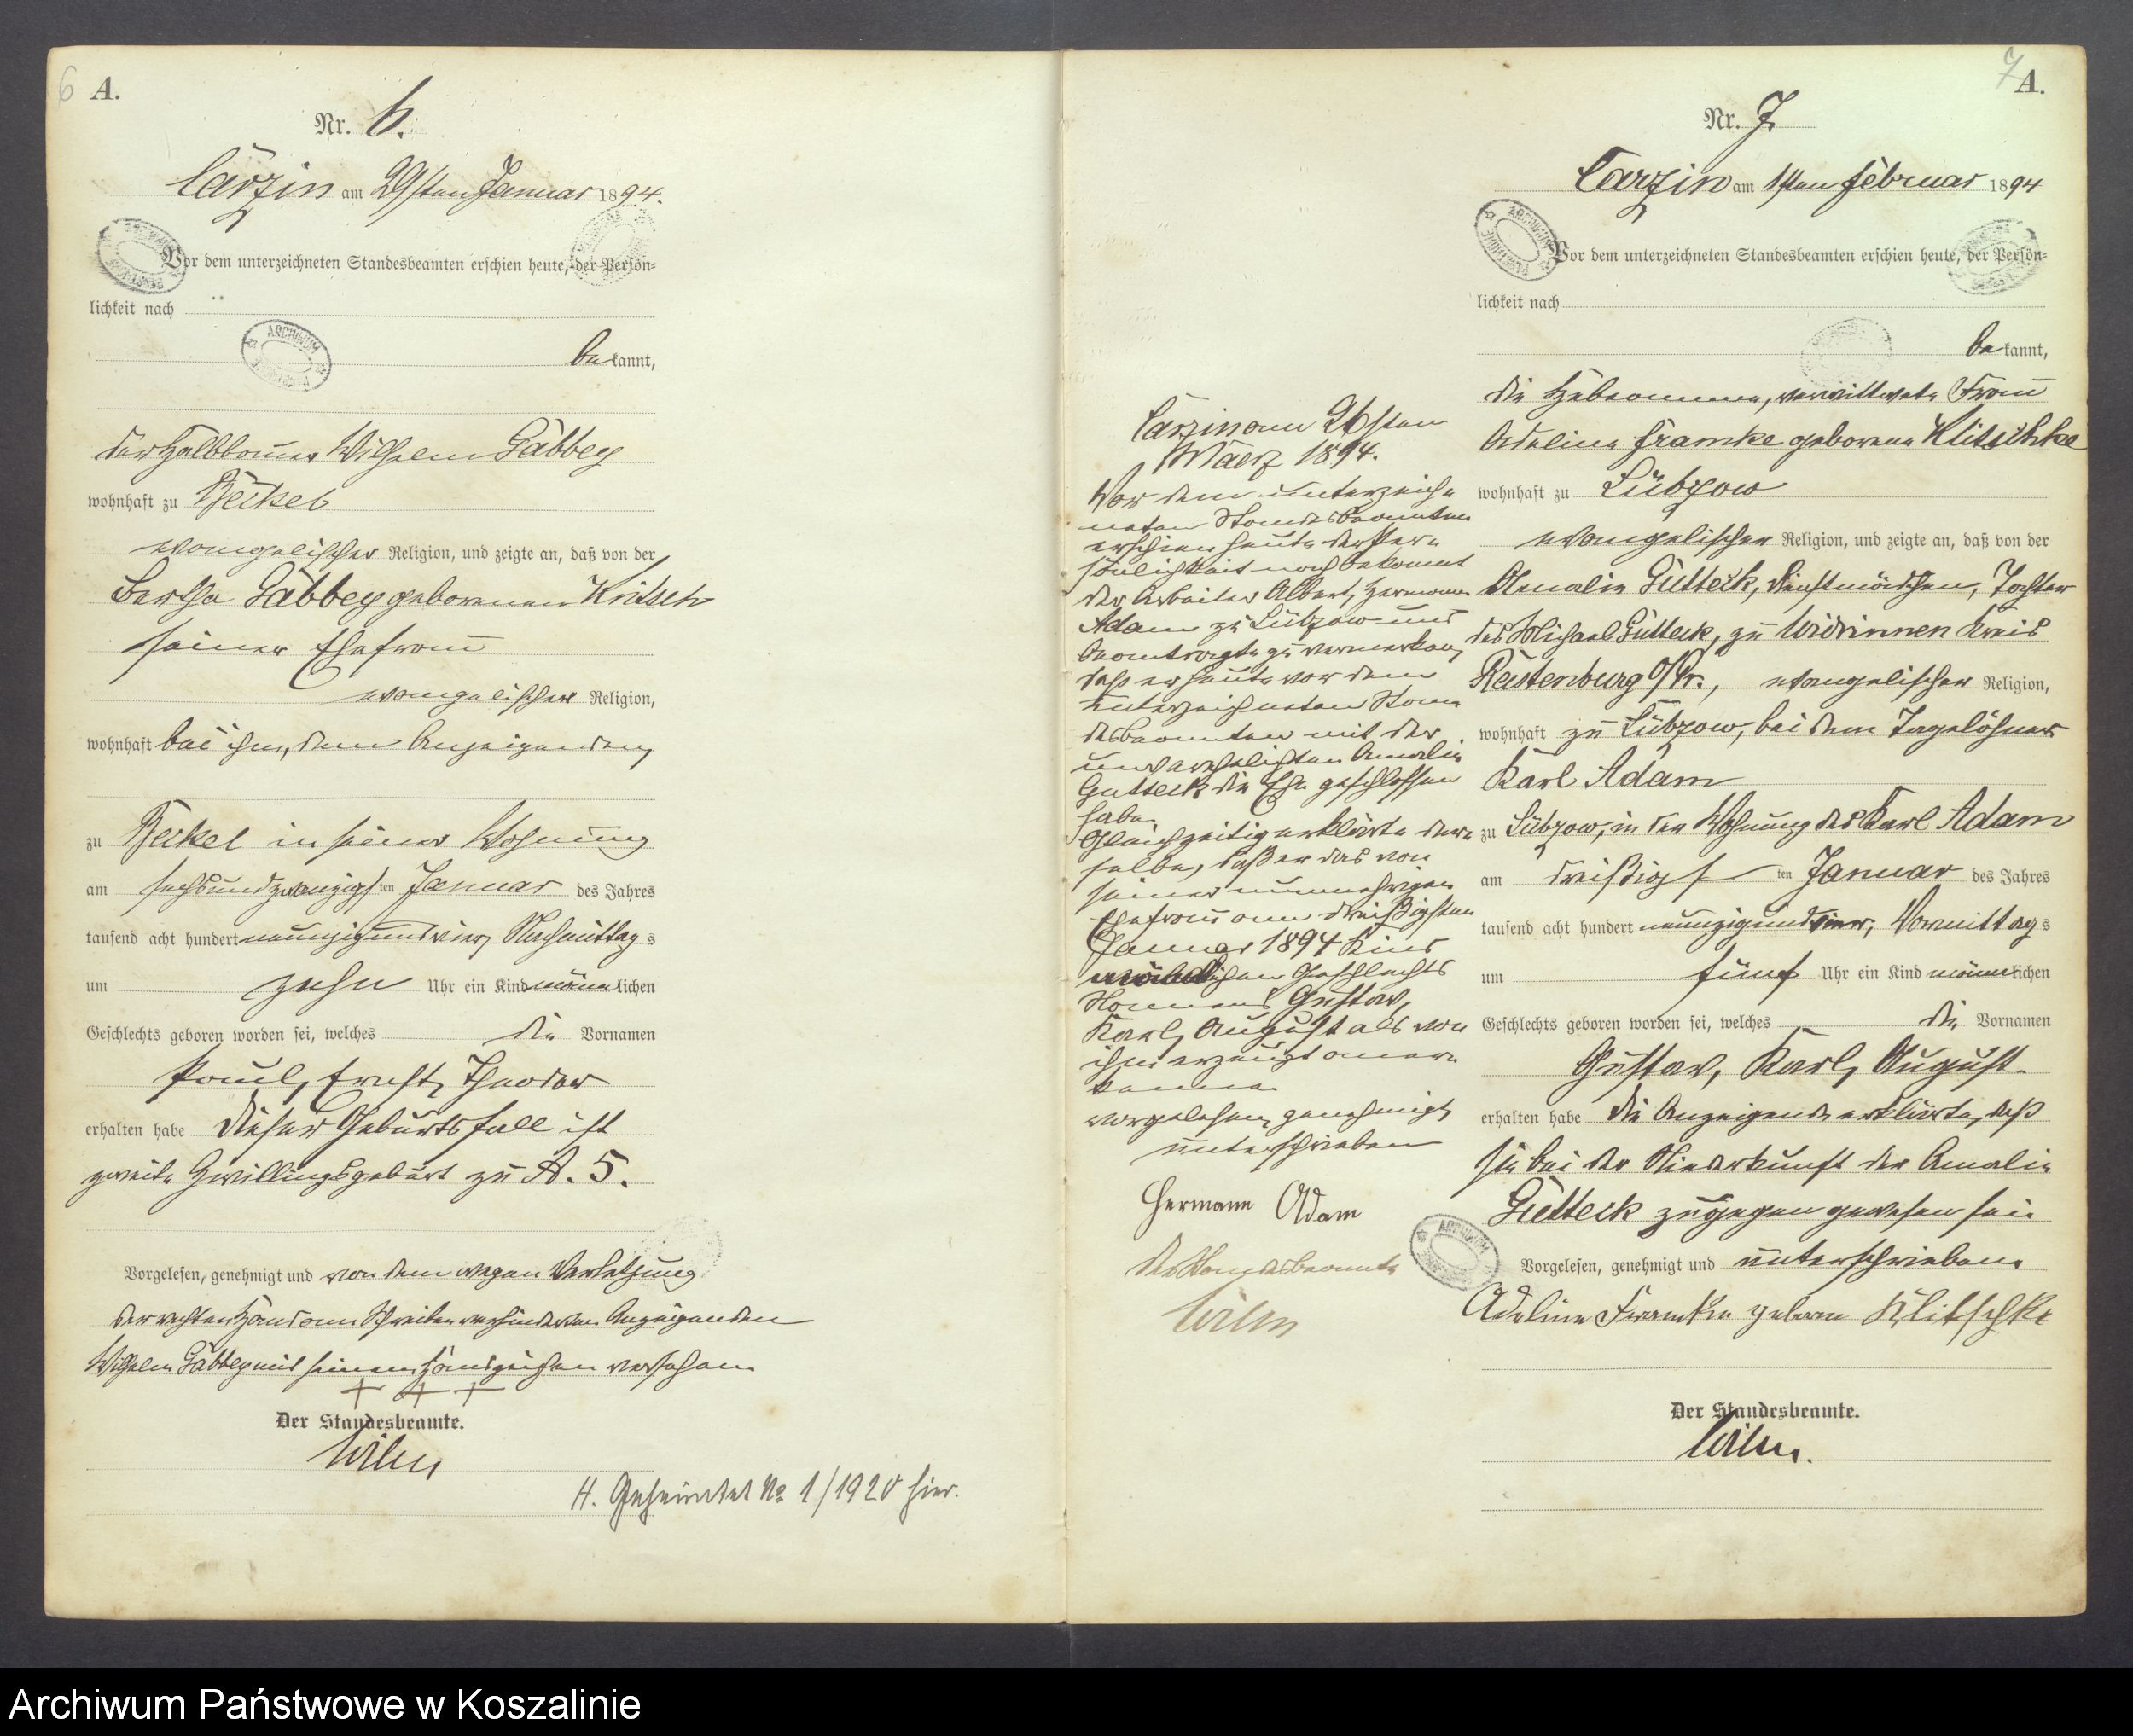 6 A.
Nr. 6.
Carzin am 29sten Januar 1894.
Vor dem unterzeichneten Standesbeamten erschien heute, der Persön-
lichkeit nach
bekannt,
der Halbbauer Wilhelm Gäbbey
wohnhaft zu Beckel
evangelischer Religion, und zeigte an, daß von der
Bertha Gäbbey geborenen Kritsch
seiner Ehefrau
evangelischer Religion,
wohnhaft bei ihm, dem Anzeigenden,
zu Beckel in seiner Wohnung
am sechsundzwanzigsten Januar des Jahres
tausend acht hundert neunzig und vier, Nachmittags
um zehn Uhr ein Kind männlichen
Geschlechts geboren worden sei, welches die Vornamen
Paul, Ernst, Theodor
erhalten habe Dieser Geburtsfall ist
zweite Zwillingsgeburt zu A. 5.
Vorgelesen, genehmigt und von dem wegen Verletzung
der rechten Hand am Schreiben verhinderten Anzeigenden
Wilhelm Gäbbey mit seinem Handzeichen versehen
+ + +
Der Standesbeamte.
Wilm
H. Geheiratet No 1/1920 hier.
7 A.
Nr. 7.
Carzin am 1sten Februar 1894
Vor dem unterzeichneten Standesbeamten erschien heute, der Persön-
lichkeit nach
bekannt,
die Hebeamme, verwittwete Frau
Adeline Framke geborene Klitschke
wohnhaft zu Lübzow
evangelischer Religion, und zeigte an, daß von der
Amalie Gutteck, Dienstmädchen, Tochter
des Michael Gutteck, zu Widrinnen Kreis
Rastenburg O/Pr., evangelischer Religion,
wohnhaft zu Lübzow, bei dem Tagelöhner
Karl Adam
zu Lübzow, in der Wohnung des Karl Adam
am dreißigsten Januar des Jahres
tausend acht hundert neunzig und vier, Vormittags
um fünf Uhr ein Kind männlichen
Geschlechts geboren worden sei, welches die Vornamen
Gustav, Karl, August
erhalten habe Die Anzeigende erklärte, daß
sie bei der Niederkunft der Amalie
Gutteck zugegen gewesen sei
Vorgelesen, genehmigt und unterschrieben
Adeline Framke geborne Klitschke
Der Standesbeamte.
Wilm.
Carzin am 26sten
März 1894.
Vor dem unterzeich-
neten Standesbeamten
erschien heute der Per-
sönlichkeit nach bekannt
der Arbeiter Albert, Hermann
Adam zu Lübzow und
beantragte zu vermerken,
daß er heute vor dem
unterzeichneten Stan-
desbeamten mit der
unverehelichten Amalie
Gutteck die Ehe geschlossen
habe.
Gleichzeitig erklärte der-
selbe, daß er das von
seiner nunmehrigen
Ehefrau am dreißigsten
Januar 1894 Kind
männlichen Geschlechts
Namens Gustav,
Karl, August als von
ihm erzeugt aner-
kenne.
vorgelesen, genehmigt,
unterschrieben
Hermann Adam
Der Standesbeamte
Wilm
Archiwum Państwowe w Koszalinie